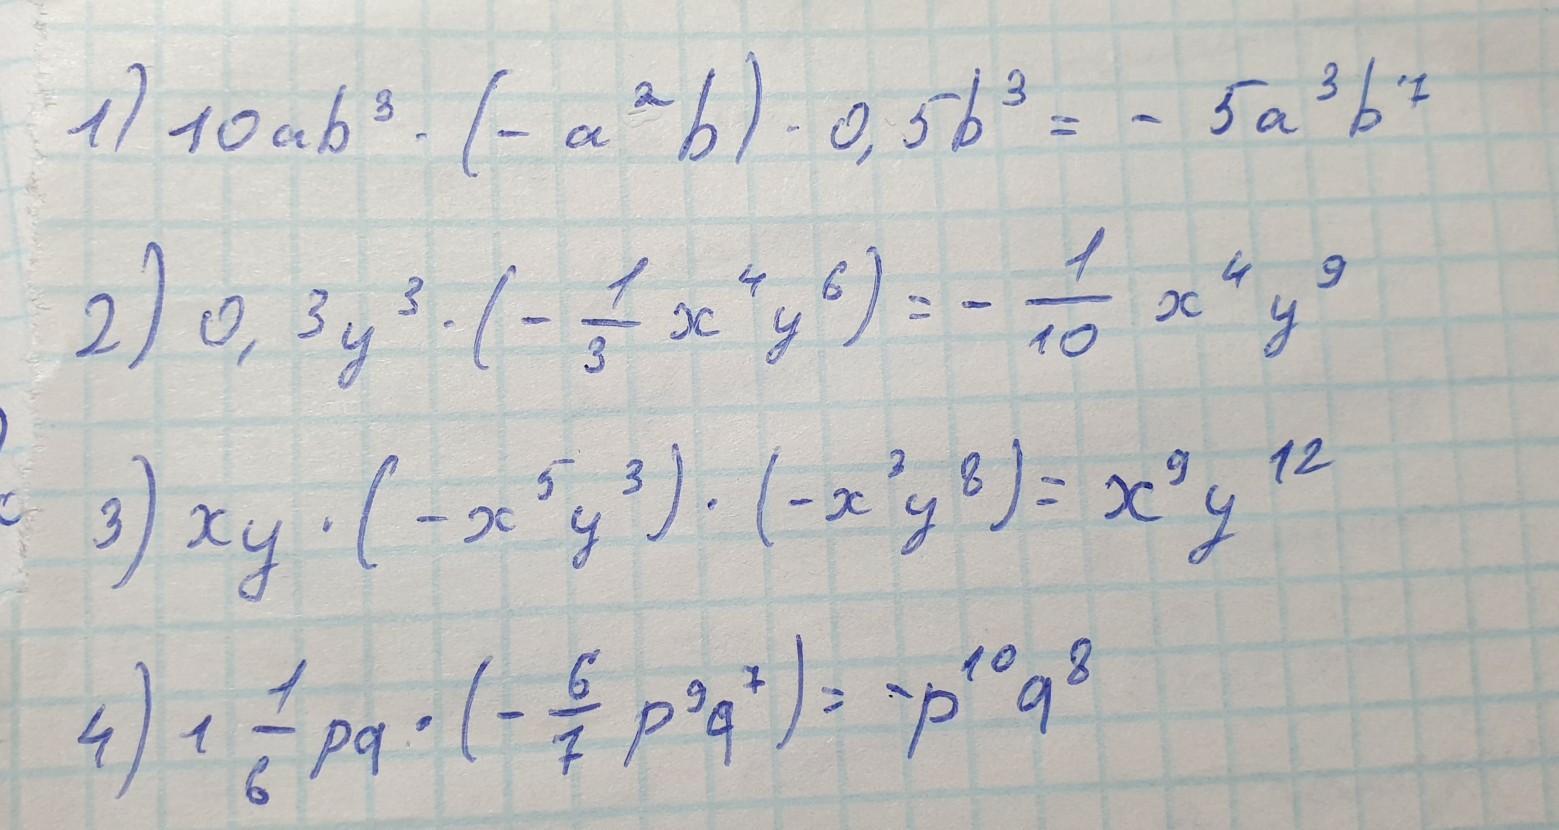 1) 10ab³ · (- a²b) · 0,5b³ = - 5a³b⁷
2) 0,3y³ · (- 1/3 x⁴y⁶) = - 1/10 x⁴y⁹
3) xy · (-x⁵y³) · (-x³y⁸) = x⁹y¹²
4) 1 1/6 pq · (- 6/7 p⁹q⁷) = -p¹⁰q⁸